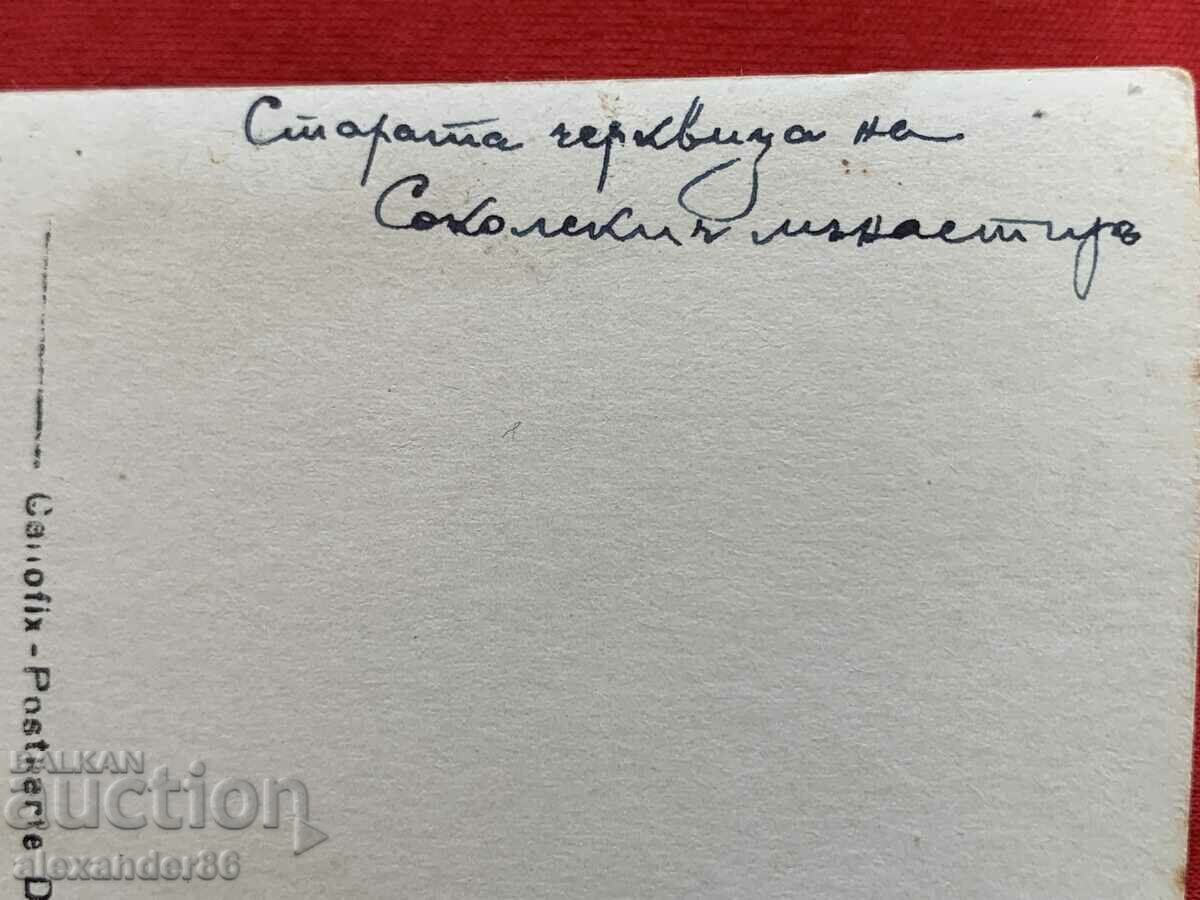 Старата черквица на
Соколския мънастиръ
Canofix - Postkarte D
BALKAN
auction
alexander86